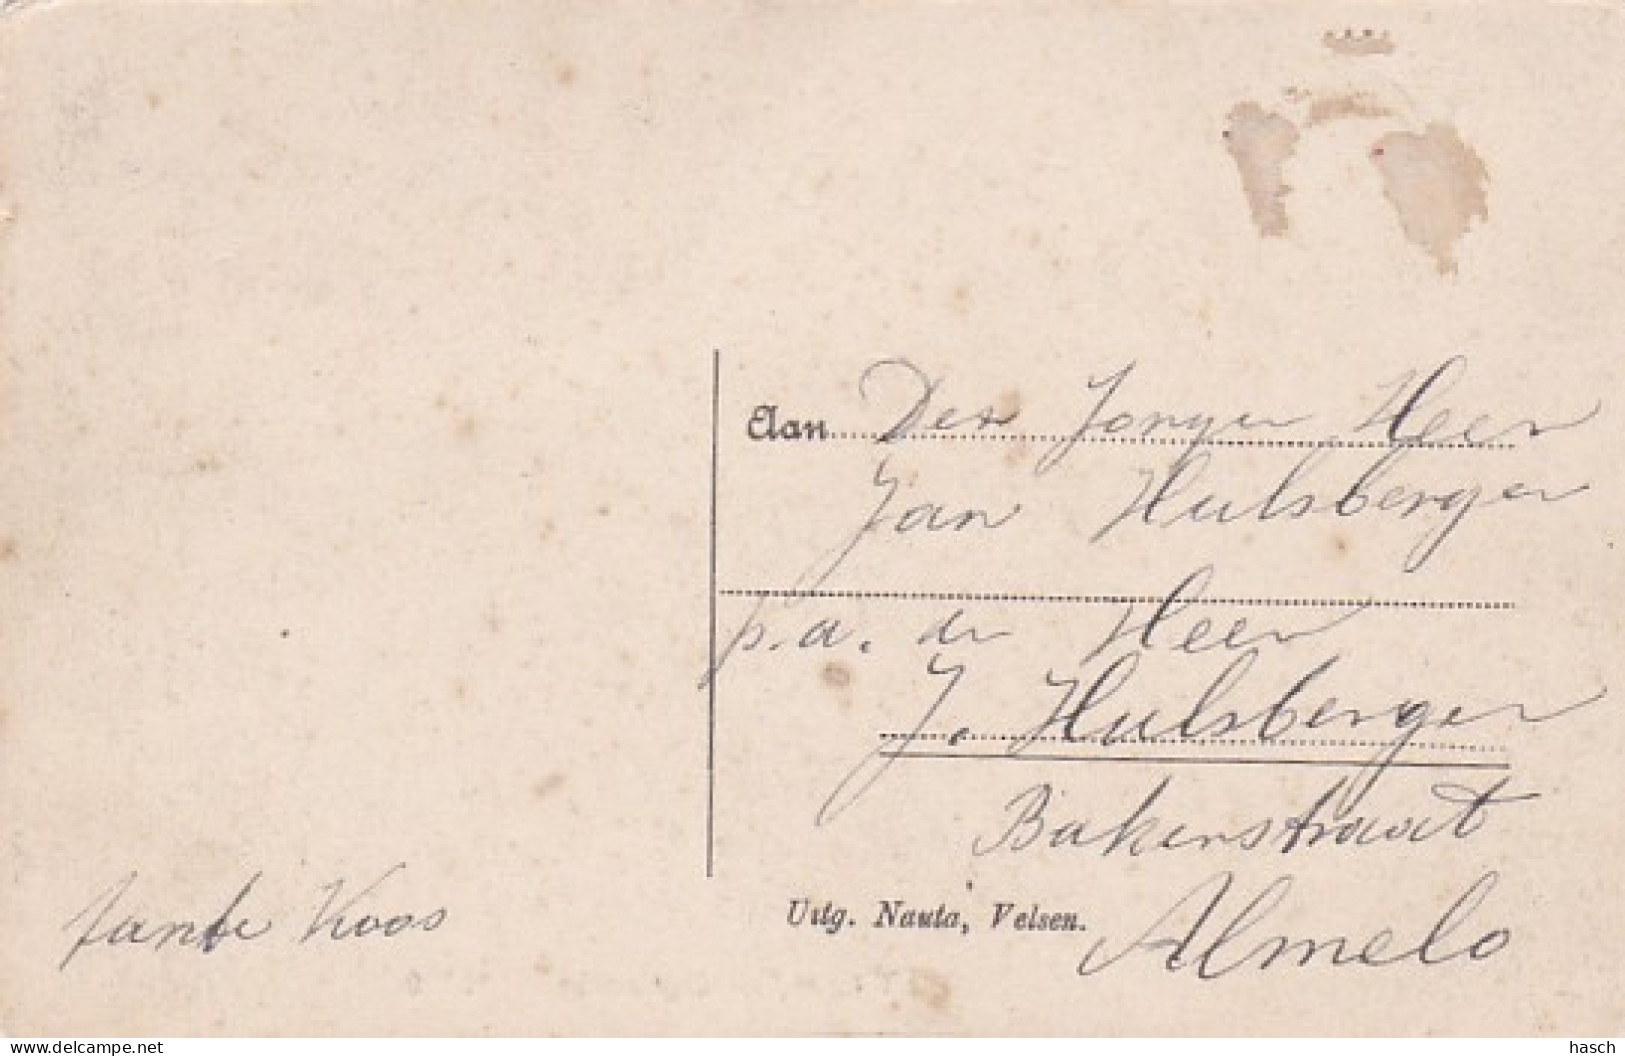 Aan Den Jongen Heer
Jan Hulsberger
p.a. den Heer
J. Hulsberger
Bakerstraat
Almelo
Uitg. Nauta, Velsen.
tante Koos
www.delcampe.net
hasch